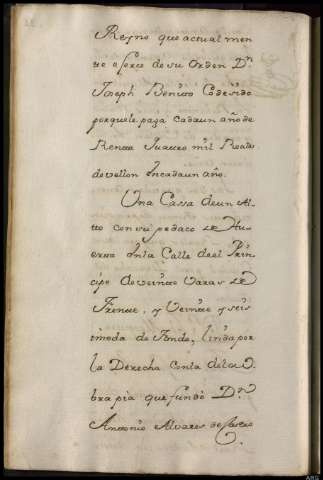 Reyno que actual men
te exerce de su orden Dn
Joseph Benito
porque le paga cada un año de
Renta quatro mil Reales
de vellon En cada un año.
Una Cassa de un Al
to con su pedaco de Hu
erto En la Calle del Prin
cipe de veinte Varas de
Frente, y Veinte y seis
y media de Fondo, linda por
la Derecha con la de la O
bra pia que fundò Dn
Antonio Alvares de Castro
ARG